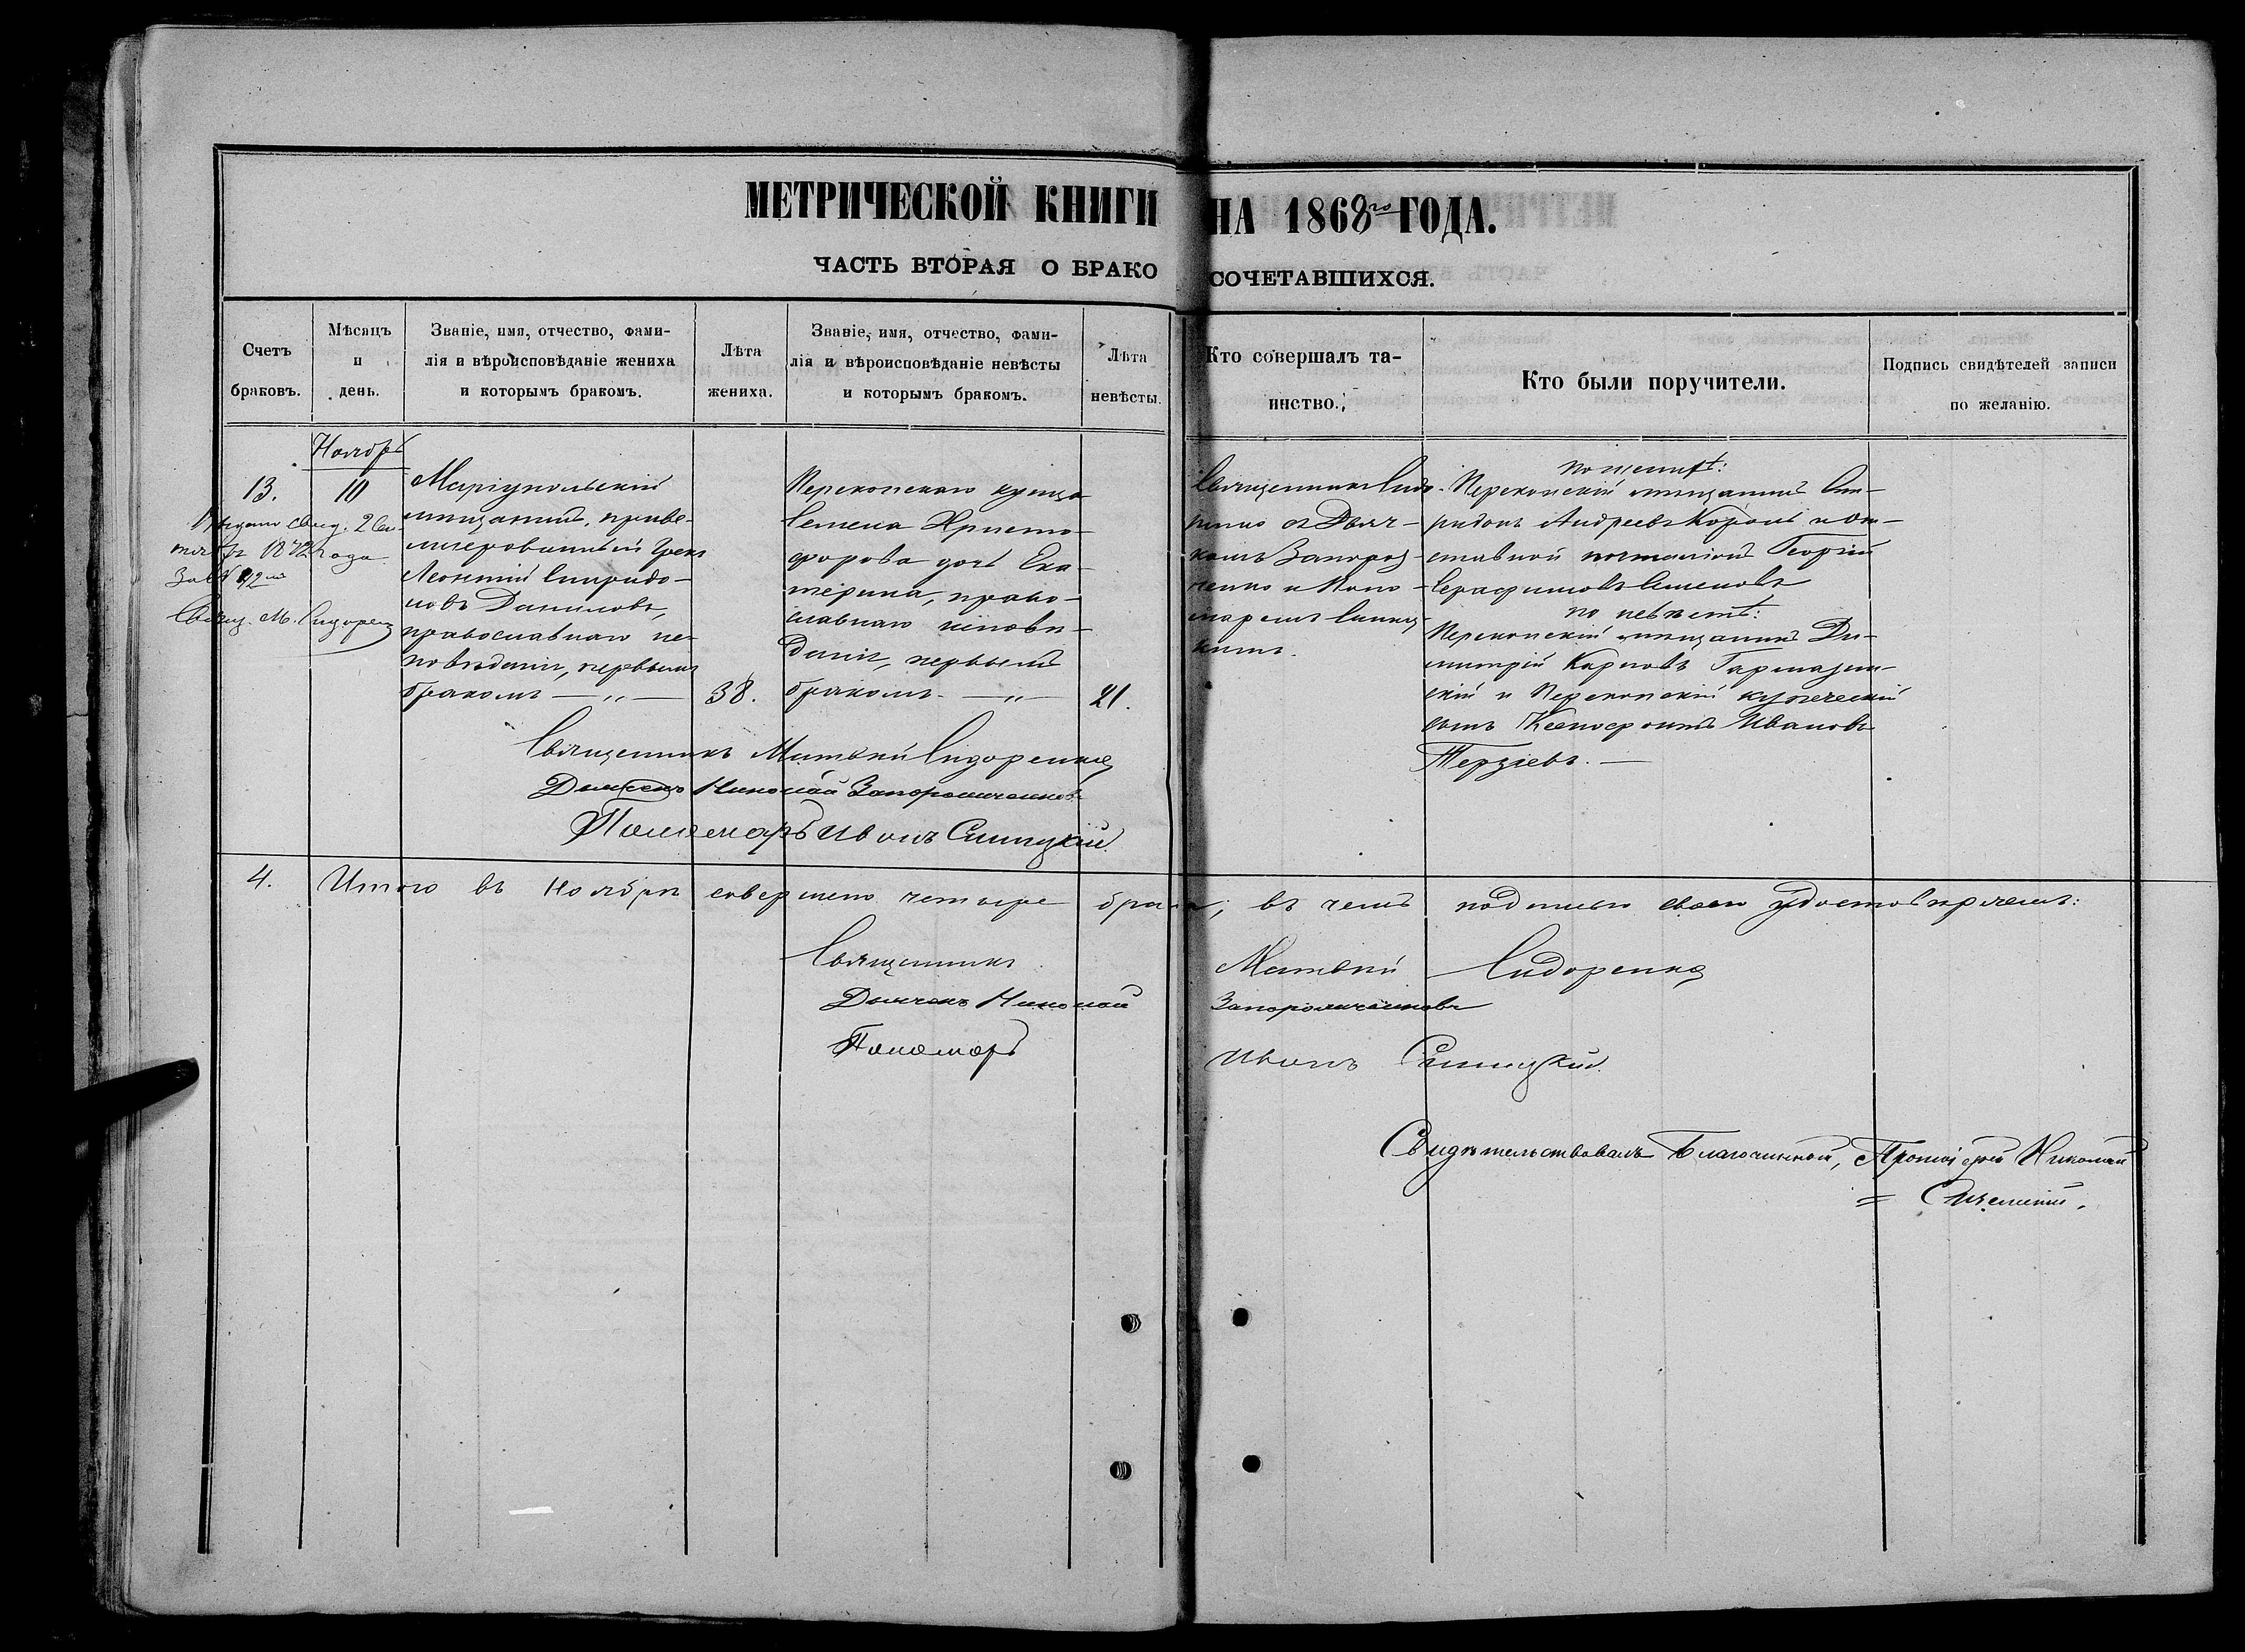 МЕТРИЧЕСКОЙ КНИГИ НА 1868го ГОДА.
ЧАСТЬ ВТОРАЯ О БРАКОСОЧЕТАВШИХСЯ.
Счетъ
браковъ.
Мѣсяцъ
и
день.
Званіе, имя, отчество, фами-
лія и вѣроисповѣданіе жениха
и которымъ бракомъ.
Лѣта
жениха.
Званіе, имя, отчество, фами-
лія и вѣроисповѣданіе невѣсты
и которымъ бракомъ.
Лѣта
невѣсты.
Кто совершалъ та-
инство.
Кто были поручители.
Подпись свидѣтелей записи
по желанію.
Ноябрь
13.
10
Выдано свид. 2 Сен-
тября 1872 года
За №
Свящ. М. Сидоренко
Маріупольскій
мѣщанинъ, приве-
лигерованный Грекъ
Леонтій Спиридо-
новъ Даниловъ,
православнаго ис-
повѣданія, первымъ
бракомъ — „ —
38.
Перекопскаго купца
Семена Христо-
форова дочь Ека-
терина, право-
славнаго исповѣ-
данія, первымъ
бракомъ — „ —
21.
Священникъ Сидо-
ренко съ Дьяч-
комъ Запорож-
ченко и Поно-
маремъ Синиц-
кимъ.
по женихѣ:
Перекопскій мѣщанинъ Спи-
ридонъ Андреевъ Король и от-
ставной почталіонъ Георгій
Серафимовъ Семеновъ
по невѣстѣ:
Перекопскій мѣщанинъ Ди-
митрій Карповъ Гармазин-
скій и Перекопскій купеческій
сынъ Ксенофонтъ Ивановъ
Терзіевъ. —
Священникъ Матвѣй Сидоренко
Дьячекъ Николай Запорожченковъ
Пономарь Иванъ Синицкій.
4.
Итого въ Ноябрѣ совершено четыре брака, въ чемъ подписью своею удостовѣряемъ:
Священникъ Матвѣй Сидоренко
Дьячекъ Николай Запорожченковъ
Пономарь Иванъ Синицкій.
Свидѣтельствовалъ Благочинный, Протоіерей Николай